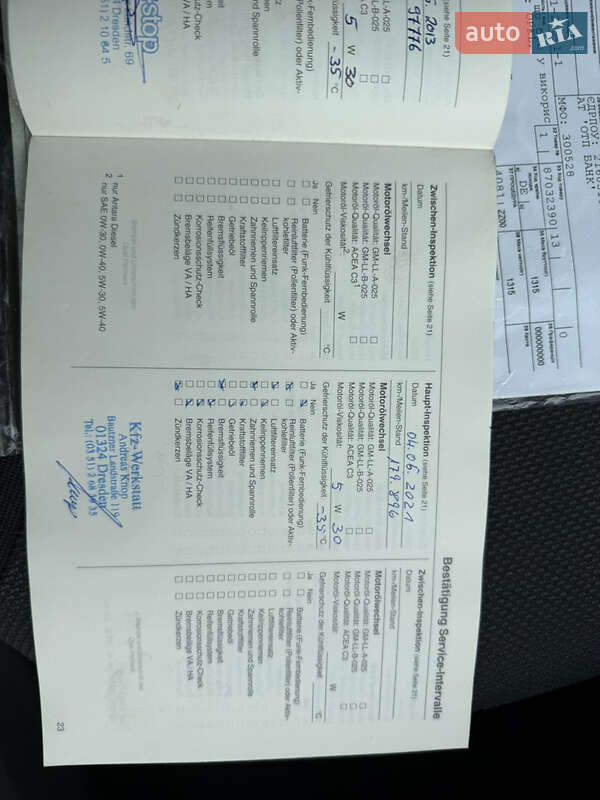 Bestätigung Service-Intervalle
Zwischen-Inspektion (siehe Seite 21)
Datum
km-/Meilen-Stand
Motorölwechsel
Motoröl-Qualität: GM-LL-A-025
Motoröl-Qualität: GM-LL-B-025
Motoröl-Qualität: ACEA C3¹
Motoröl-Viskosität² W
Gefrierschutz der Kühlflüssigkeit °C
Ja Nein
Batterie (Funk-Fernbedienung)
Reinluftfilter (Pollenfilter) oder Aktiv-
kohlefilter
Luftfiltereinsatz
Keilrippenriemen
Zahnriemen und Spannrolle
Kraftstofffilter
Getriebeöl
Bremsflüssigkeit
Reifenfüllsystem
Korrosionsschutz-Check
Bremsbeläge VA / HA
Zündkerzen
1 nur Antara Diesel
2 nur SAE 0W-30, 0W-40, 5W-30, 5W-40
Haupt-Inspektion (siehe Seite 21)
Datum 04.06.2021
km-/Meilen-Stand 179.896
Motorölwechsel
Motoröl-Qualität: GM-LL-A-025
Motoröl-Qualität: GM-LL-B-025
Motoröl-Qualität: ACEA C3
Motoröl-Viskosität: 5 W 30
Gefrierschutz der Kühlflüssigkeit -35 °C
Ja Nein
Batterie (Funk-Fernbedienung)
Reinluftfilter (Pollenfilter) oder Aktiv-
kohlefilter
Luftfiltereinsatz
Keilrippenriemen
Zahnriemen und Spannrolle
Kraftstofffilter
Getriebeöl
Bremsflüssigkeit
Reifenfüllsystem
Korrosionsschutz-Check
Bremsbeläge VA / HA
Zündkerzen
Kfz-Werkstatt
Andreas Knop
Bautzner Landstraße 119
01324 Dresden
Zwischen-Inspektion (siehe Seite 21)
Datum
km-/Meilen-Stand
Motorölwechsel
Motoröl-Qualität: GM-LL-A-025
Motoröl-Qualität: GM-LL-B-025
Motoröl-Qualität: ACEA C3
Motoröl-Viskosität: W
Gefrierschutz der Kühlflüssigkeit °C
Ja Nein
Batterie (Funk-Fernbedienung)
Reinluftfilter (Pollenfilter) oder Aktiv-
kohlefilter
Luftfiltereinsatz
Keilrippenriemen
Zahnriemen und Spannrolle
Kraftstofffilter
Getriebeöl
Bremsflüssigkeit
Reifenfüllsystem
Korrosionsschutz-Check
Bremsbeläge VA / HA
Zündkerzen
23
(siehe Seite 21)
2013
97776
LL-A-025
LL-B-025
C3
5 W 30
-35 °C
Fernbedienung)
(Pollenfilter) oder Aktiv-
Spannrolle
Check
VA / HA
stop
69
Dresden
МФО: 300528
АТ "ОТП БАНК"
8703239013
DE
1315
1315
000000000
0
2200
auto RIA .com